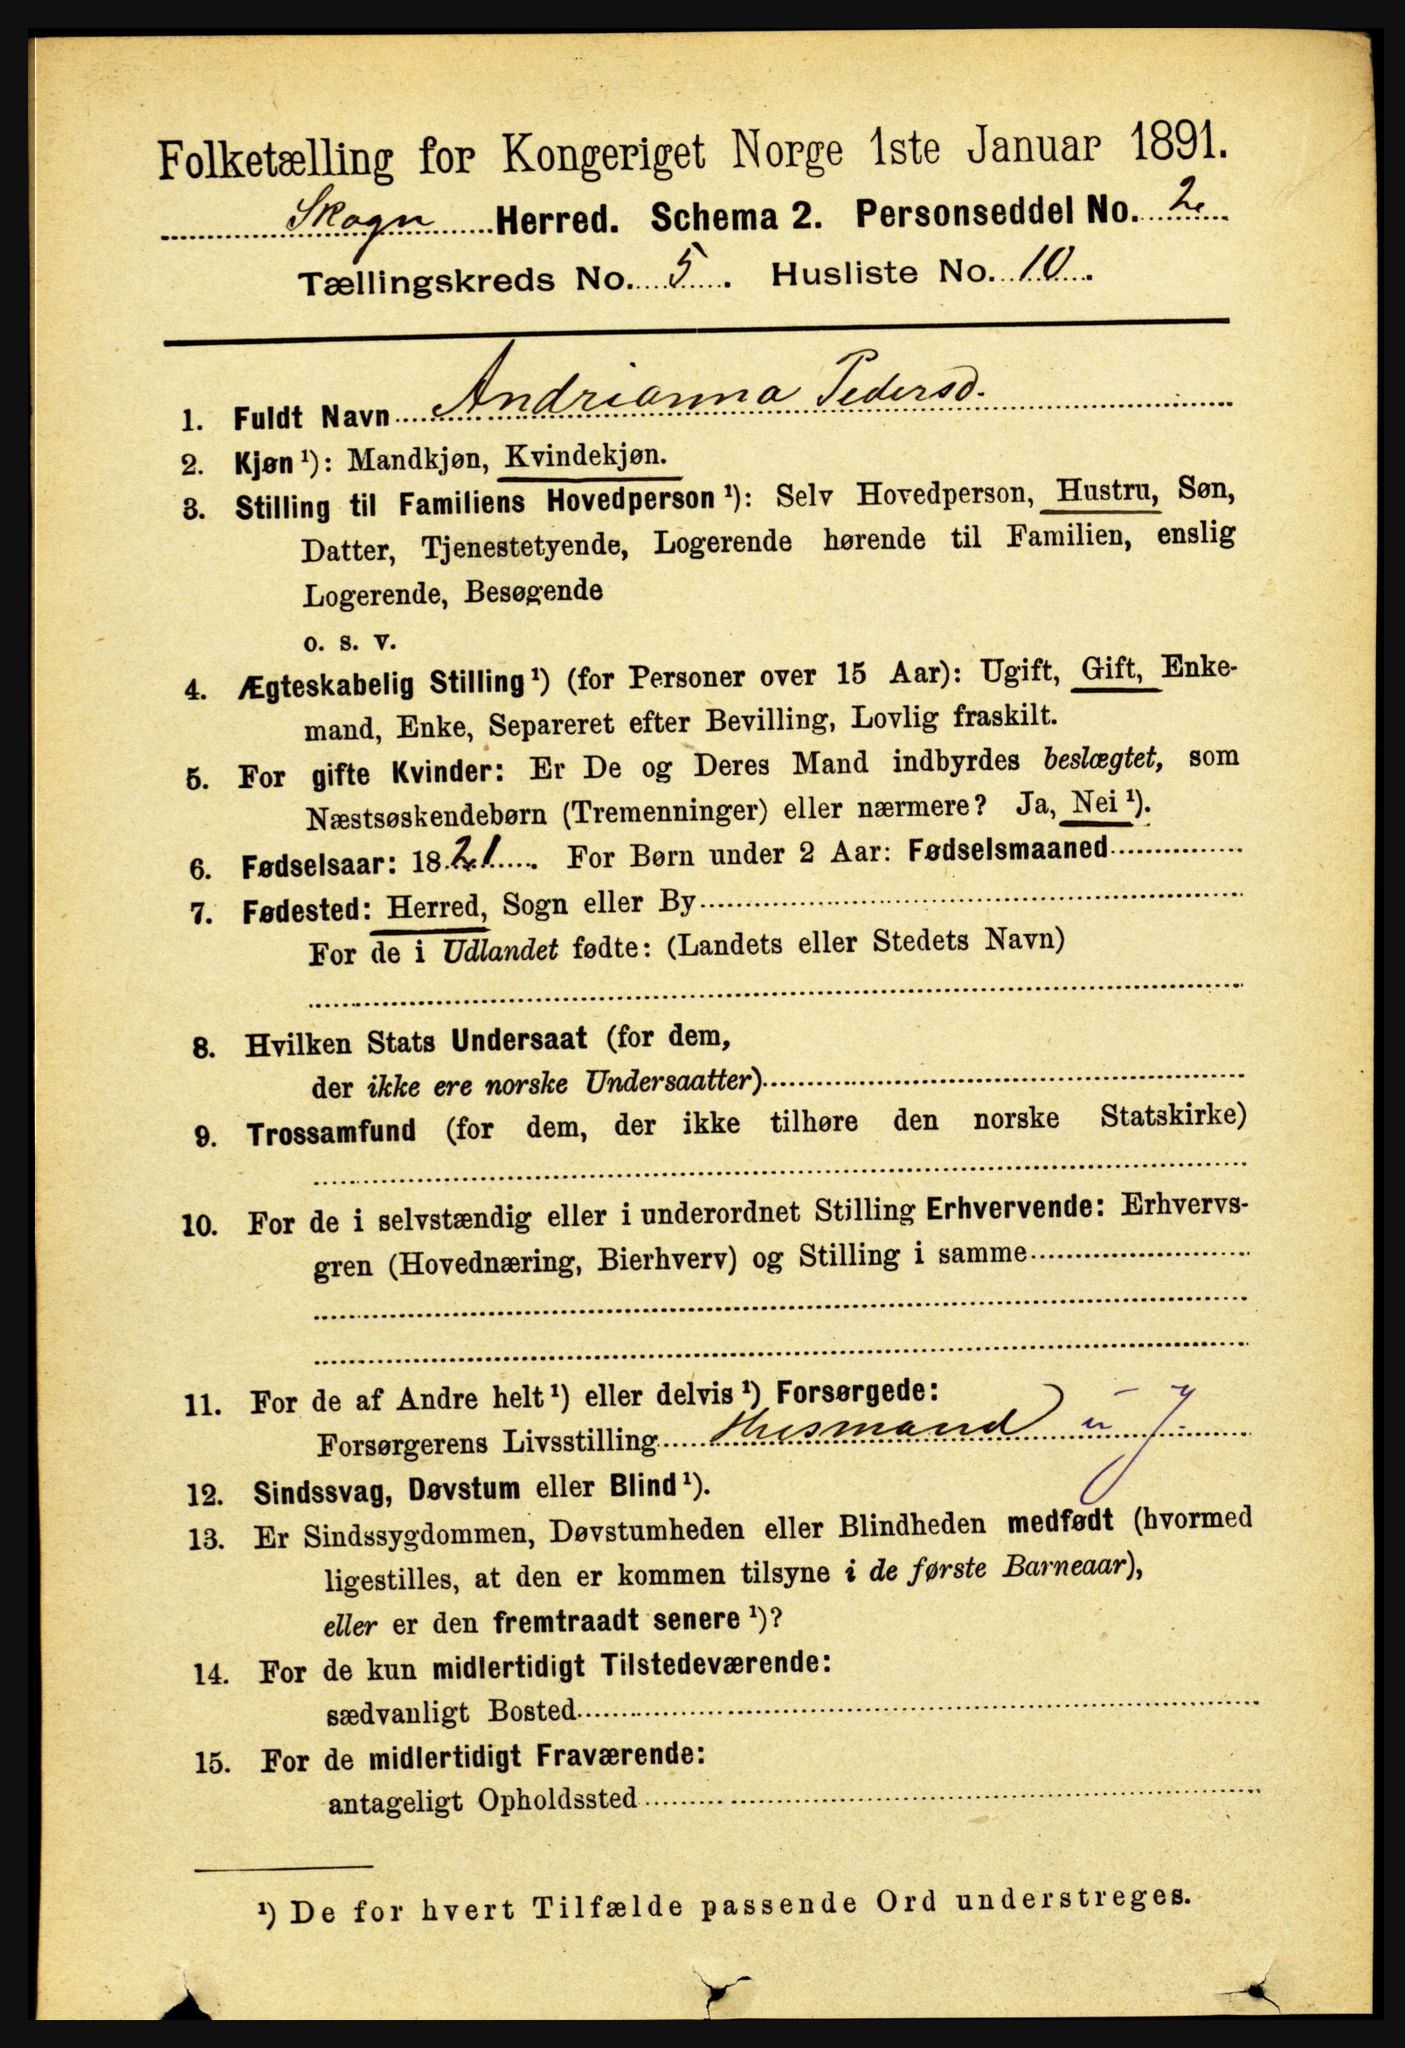 Folketælling for Kongeriget Norge 1ste Januar 1891.
Skogn Herred. Schema 2. Personseddel No. 2
Tællingskreds No. 5. Husliste No. 10.
1. Fuldt Navn Andrianna Pedersd.
2. Kjøn ¹): Mandkjøn, Kvindekjøn.
3. Stilling til Familiens Hovedperson ¹): Selv Hovedperson, Hustru, Søn,
Datter, Tjenestetyende, Logerende hørende til Familien, enslig
Logerende, Besøgende
o. s. v.
4. Ægteskabelig Stilling ¹) (for Personer over 15 Aar): Ugift, Gift, Enke-
mand, Enke, Separeret efter Bevilling, Lovlig fraskilt.
5. For gifte Kvinder: Er De og Deres Mand indbyrdes beslægtet, som
Næstsøskendebørn (Tremenninger) eller nærmere? Ja, Nei ¹).
6. Fødselsaar: 1821. For Børn under 2 Aar: Fødselsmaaned
7. Fødested: Herred, Sogn eller By
For de i Udlandet fødte: (Landets eller Stedets Navn)
8. Hvilken Stats Undersaat (for dem,
der ikke ere norske Undersaatter)
9. Trossamfund (for dem, der ikke tilhøre den norske Statskirke)
10. For de i selvstændig eller i underordnet Stilling Erhvervende: Erhvervs-
gren (Hovednæring, Bierhverv) og Stilling i samme
11. For de af Andre helt ¹) eller delvis ¹) Forsørgede:
Forsørgerens Livsstilling Husmand u J.
12. Sindssvag, Døvstum eller Blind ¹).
13. Er Sindssygdommen, Døvstumheden eller Blindheden medfødt (hvormed
ligestilles, at den er kommen tilsyne i de første Barneaar),
eller er den fremtraadt senere ¹)?
14. For de kun midlertidigt Tilstedeværende:
sædvanligt Bosted
15. For de midlertidigt Fraværende:
antageligt Opholdssted
¹) De for hvert Tilfælde passende Ord understreges.